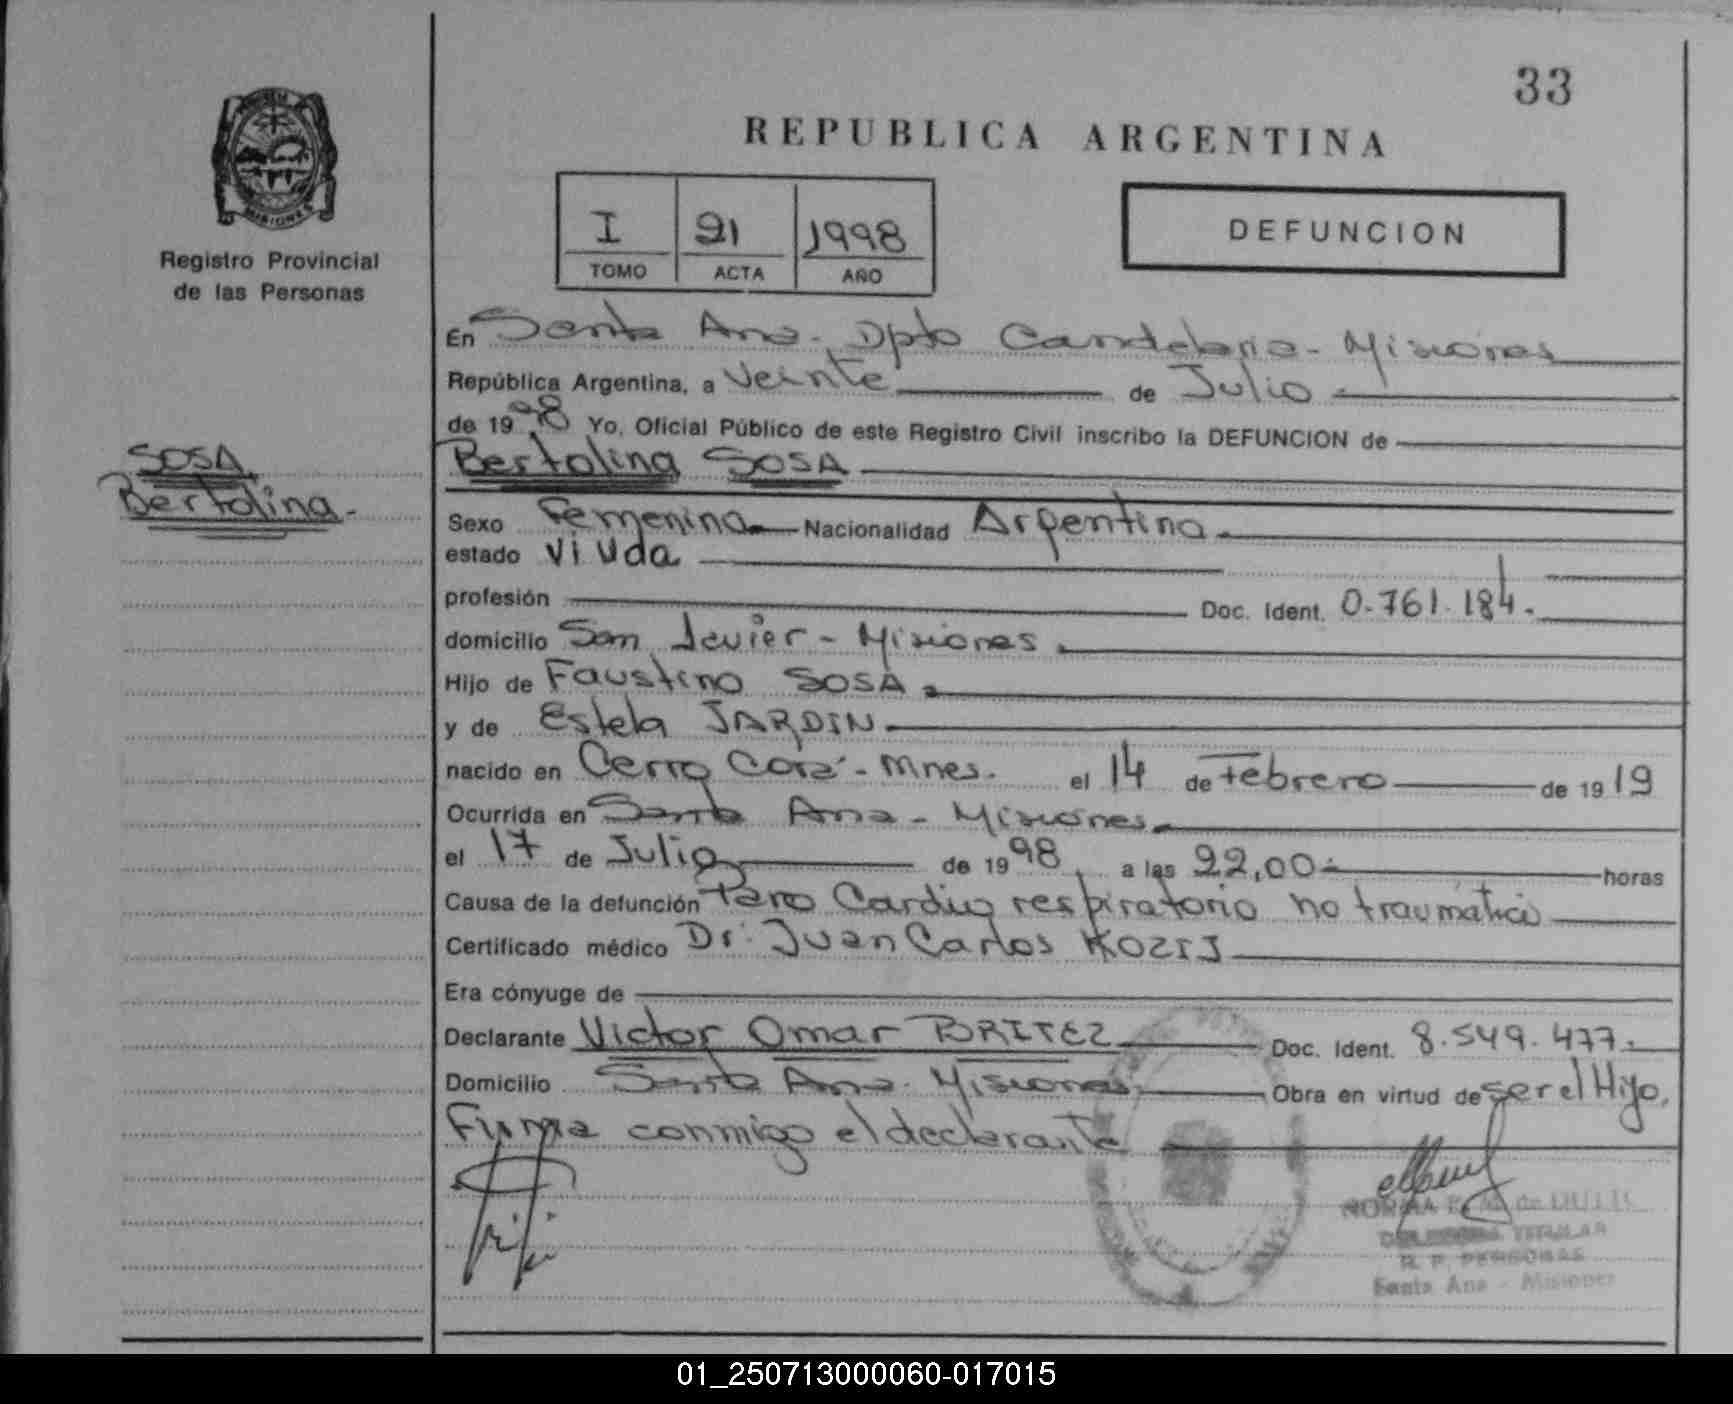 33
REPUBLICA ARGENTINA
MISIONES
Registro Provincial
de las Personas
I 91 1998
TOMO ACTA AÑO
DEFUNCION
En Santa Ana - Dpto Candelaria - Misiones
República Argentina, a Veinte de Julio
de 1998 Yo, Oficial Público de este Registro Civil inscribo la DEFUNCION de
SOSA
Bertolina.-
Bertolina SOSA
Sexo Femenina Nacionalidad Argentina.
estado Viuda
profesión Doc. Ident. 0.761.184.
domicilio San Javier - Misiones.
Hijo de Faustino SOSA.
y de Estela JARDIN.
nacido en Cerro Corá - Mnes. el 14 de Febrero de 1919
Ocurrida en Santa Ana - Misiones.
el 17 de Julio de 1998 a las 22,00 horas
Causa de la defunción Paro Cardio respiratorio no traumático
Certificado médico Dr. Juan Carlos KOZIJ
Era cónyuge de
Declarante Victor Omar BRITEZ Doc. Ident. 8.549.477.
Domicilio Santa Ana - Misiones Obra en virtud de ser el Hijo,
Firma conmigo el declarante
NORMA de
TITULAR
R. P. PERSONAS
Santa Ana - Misiones
01_250713000060-017015